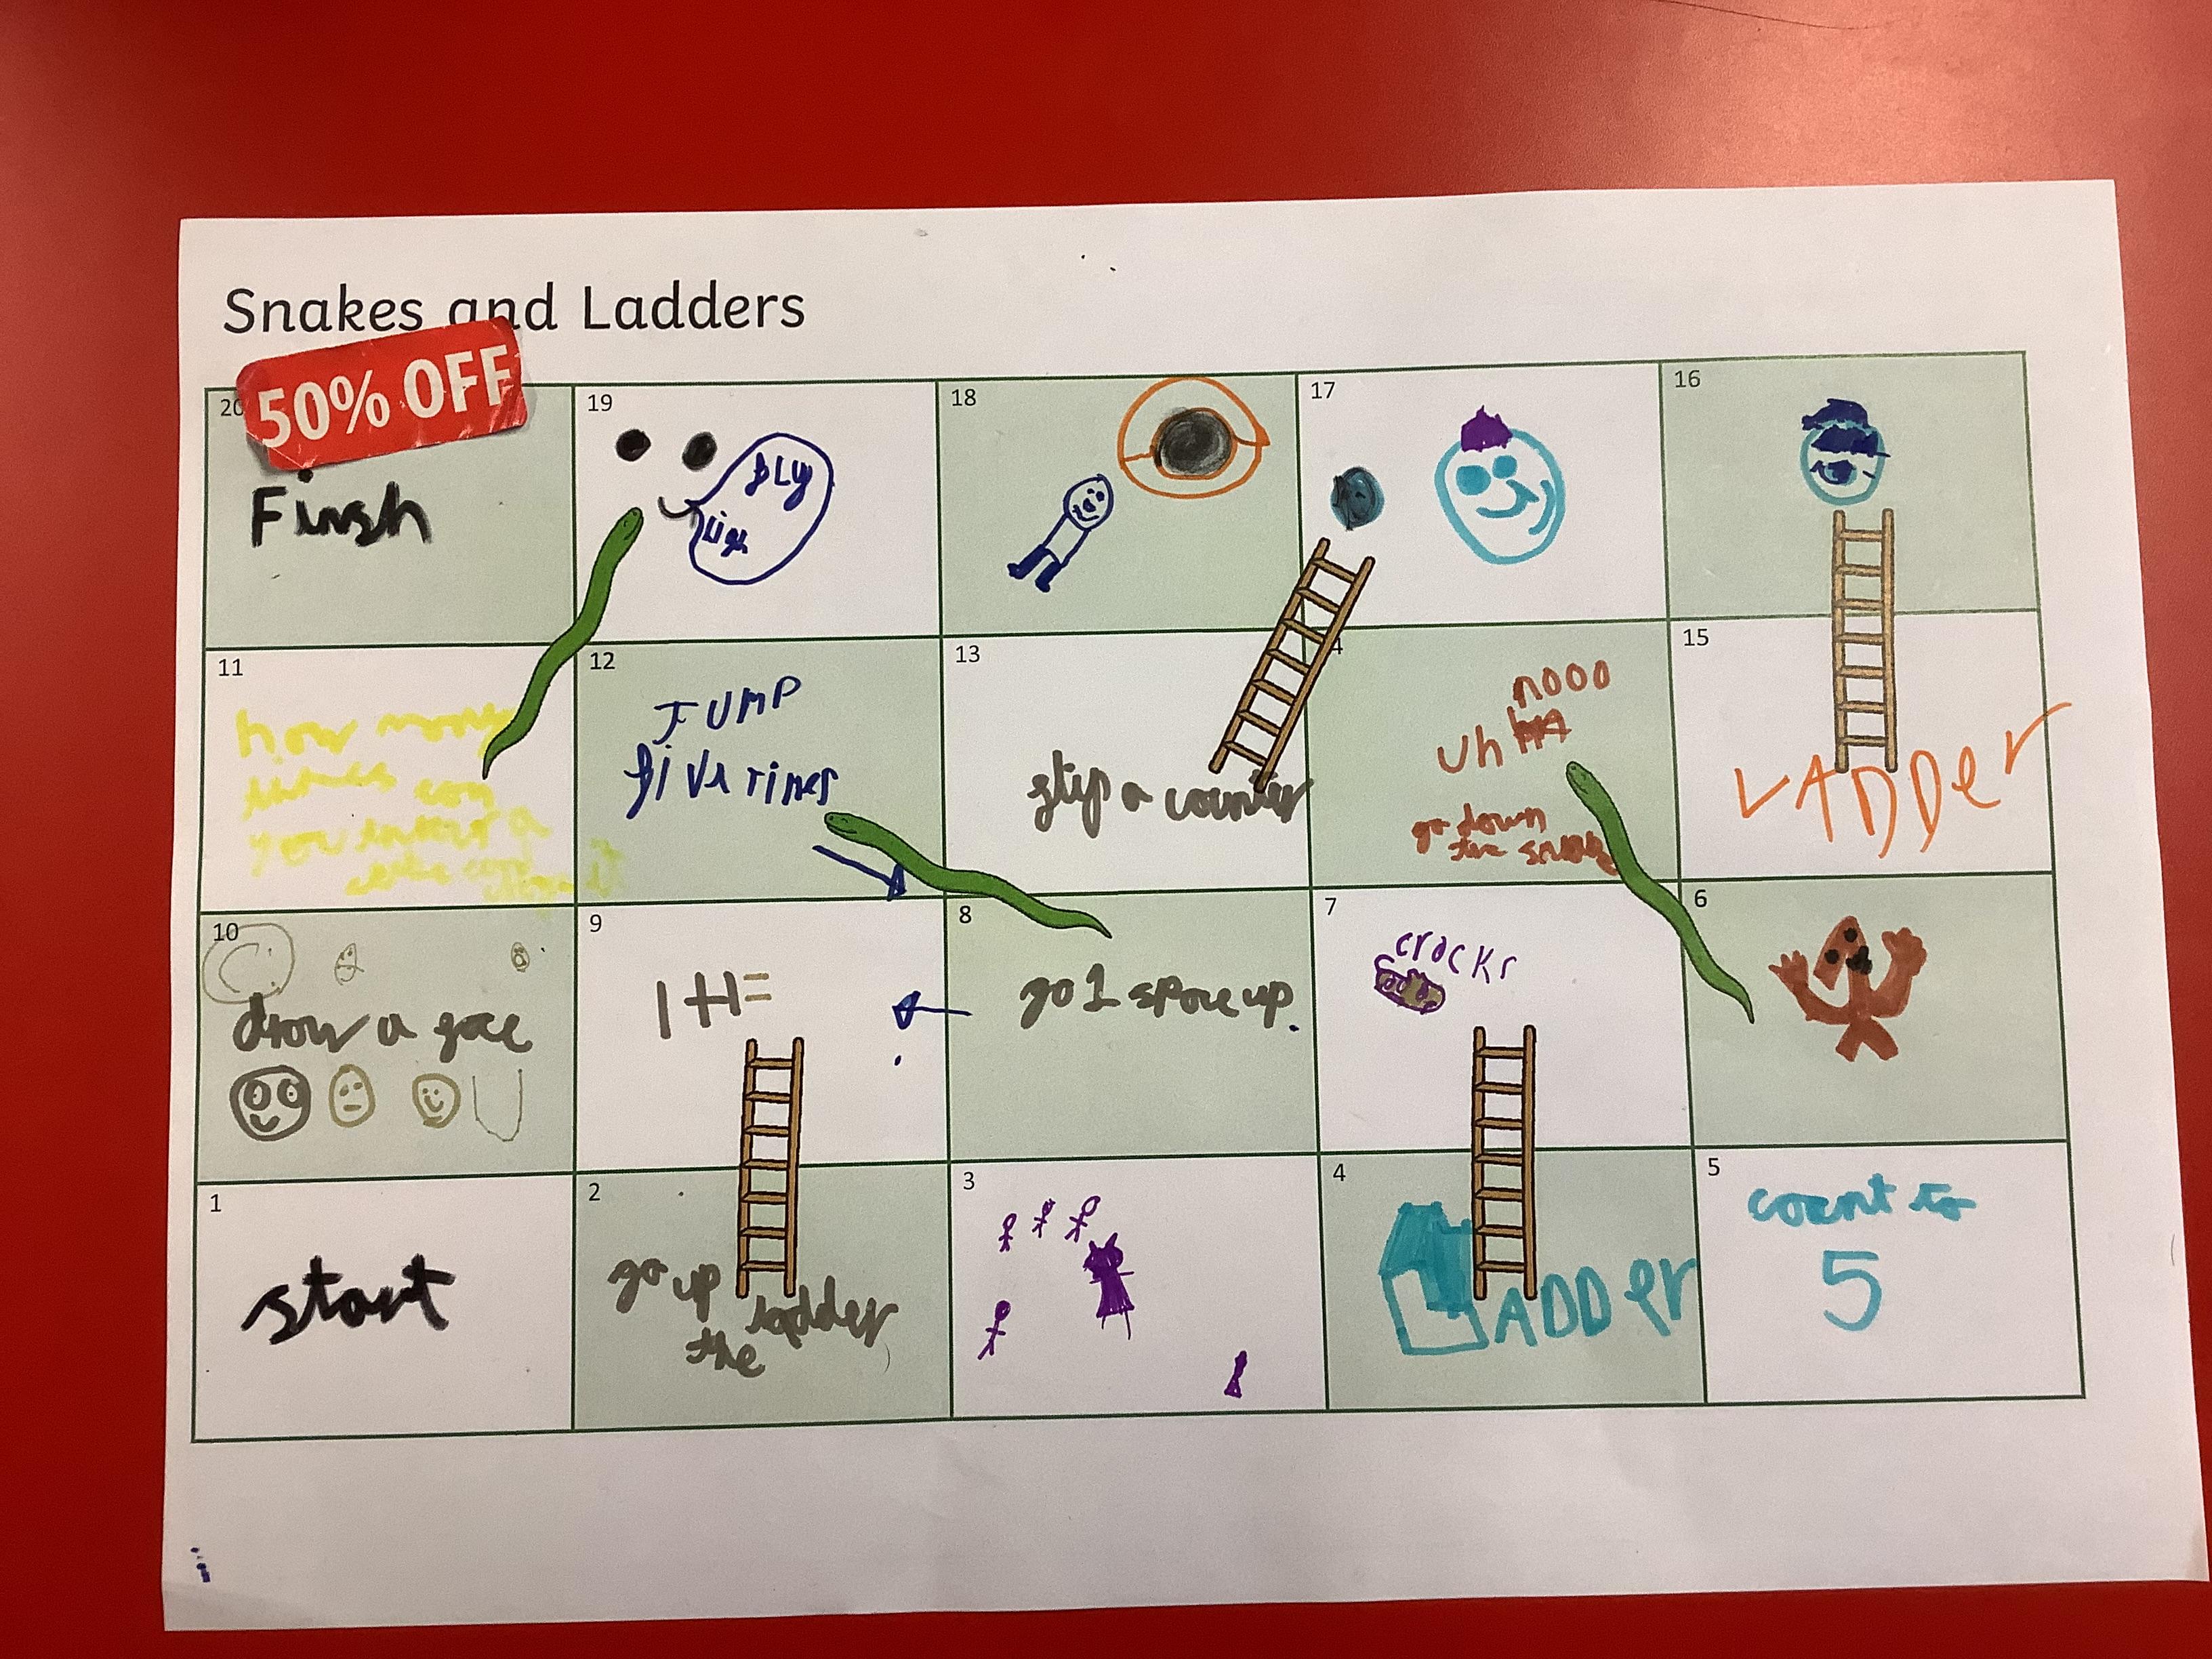 Snakes and Ladders
50% OFF
20
Finsh
19
18
17
16
11
how many
times can
you
12
JUMP
five times
13
a counter
4
nooo
uh
go down
the snake
15
LADDer
10
draw a face
9
1+1=
8
go 1 space up.
7
crocks
6
1
start
2
go up
the ladder
3
4
LADDer
5
count to
5